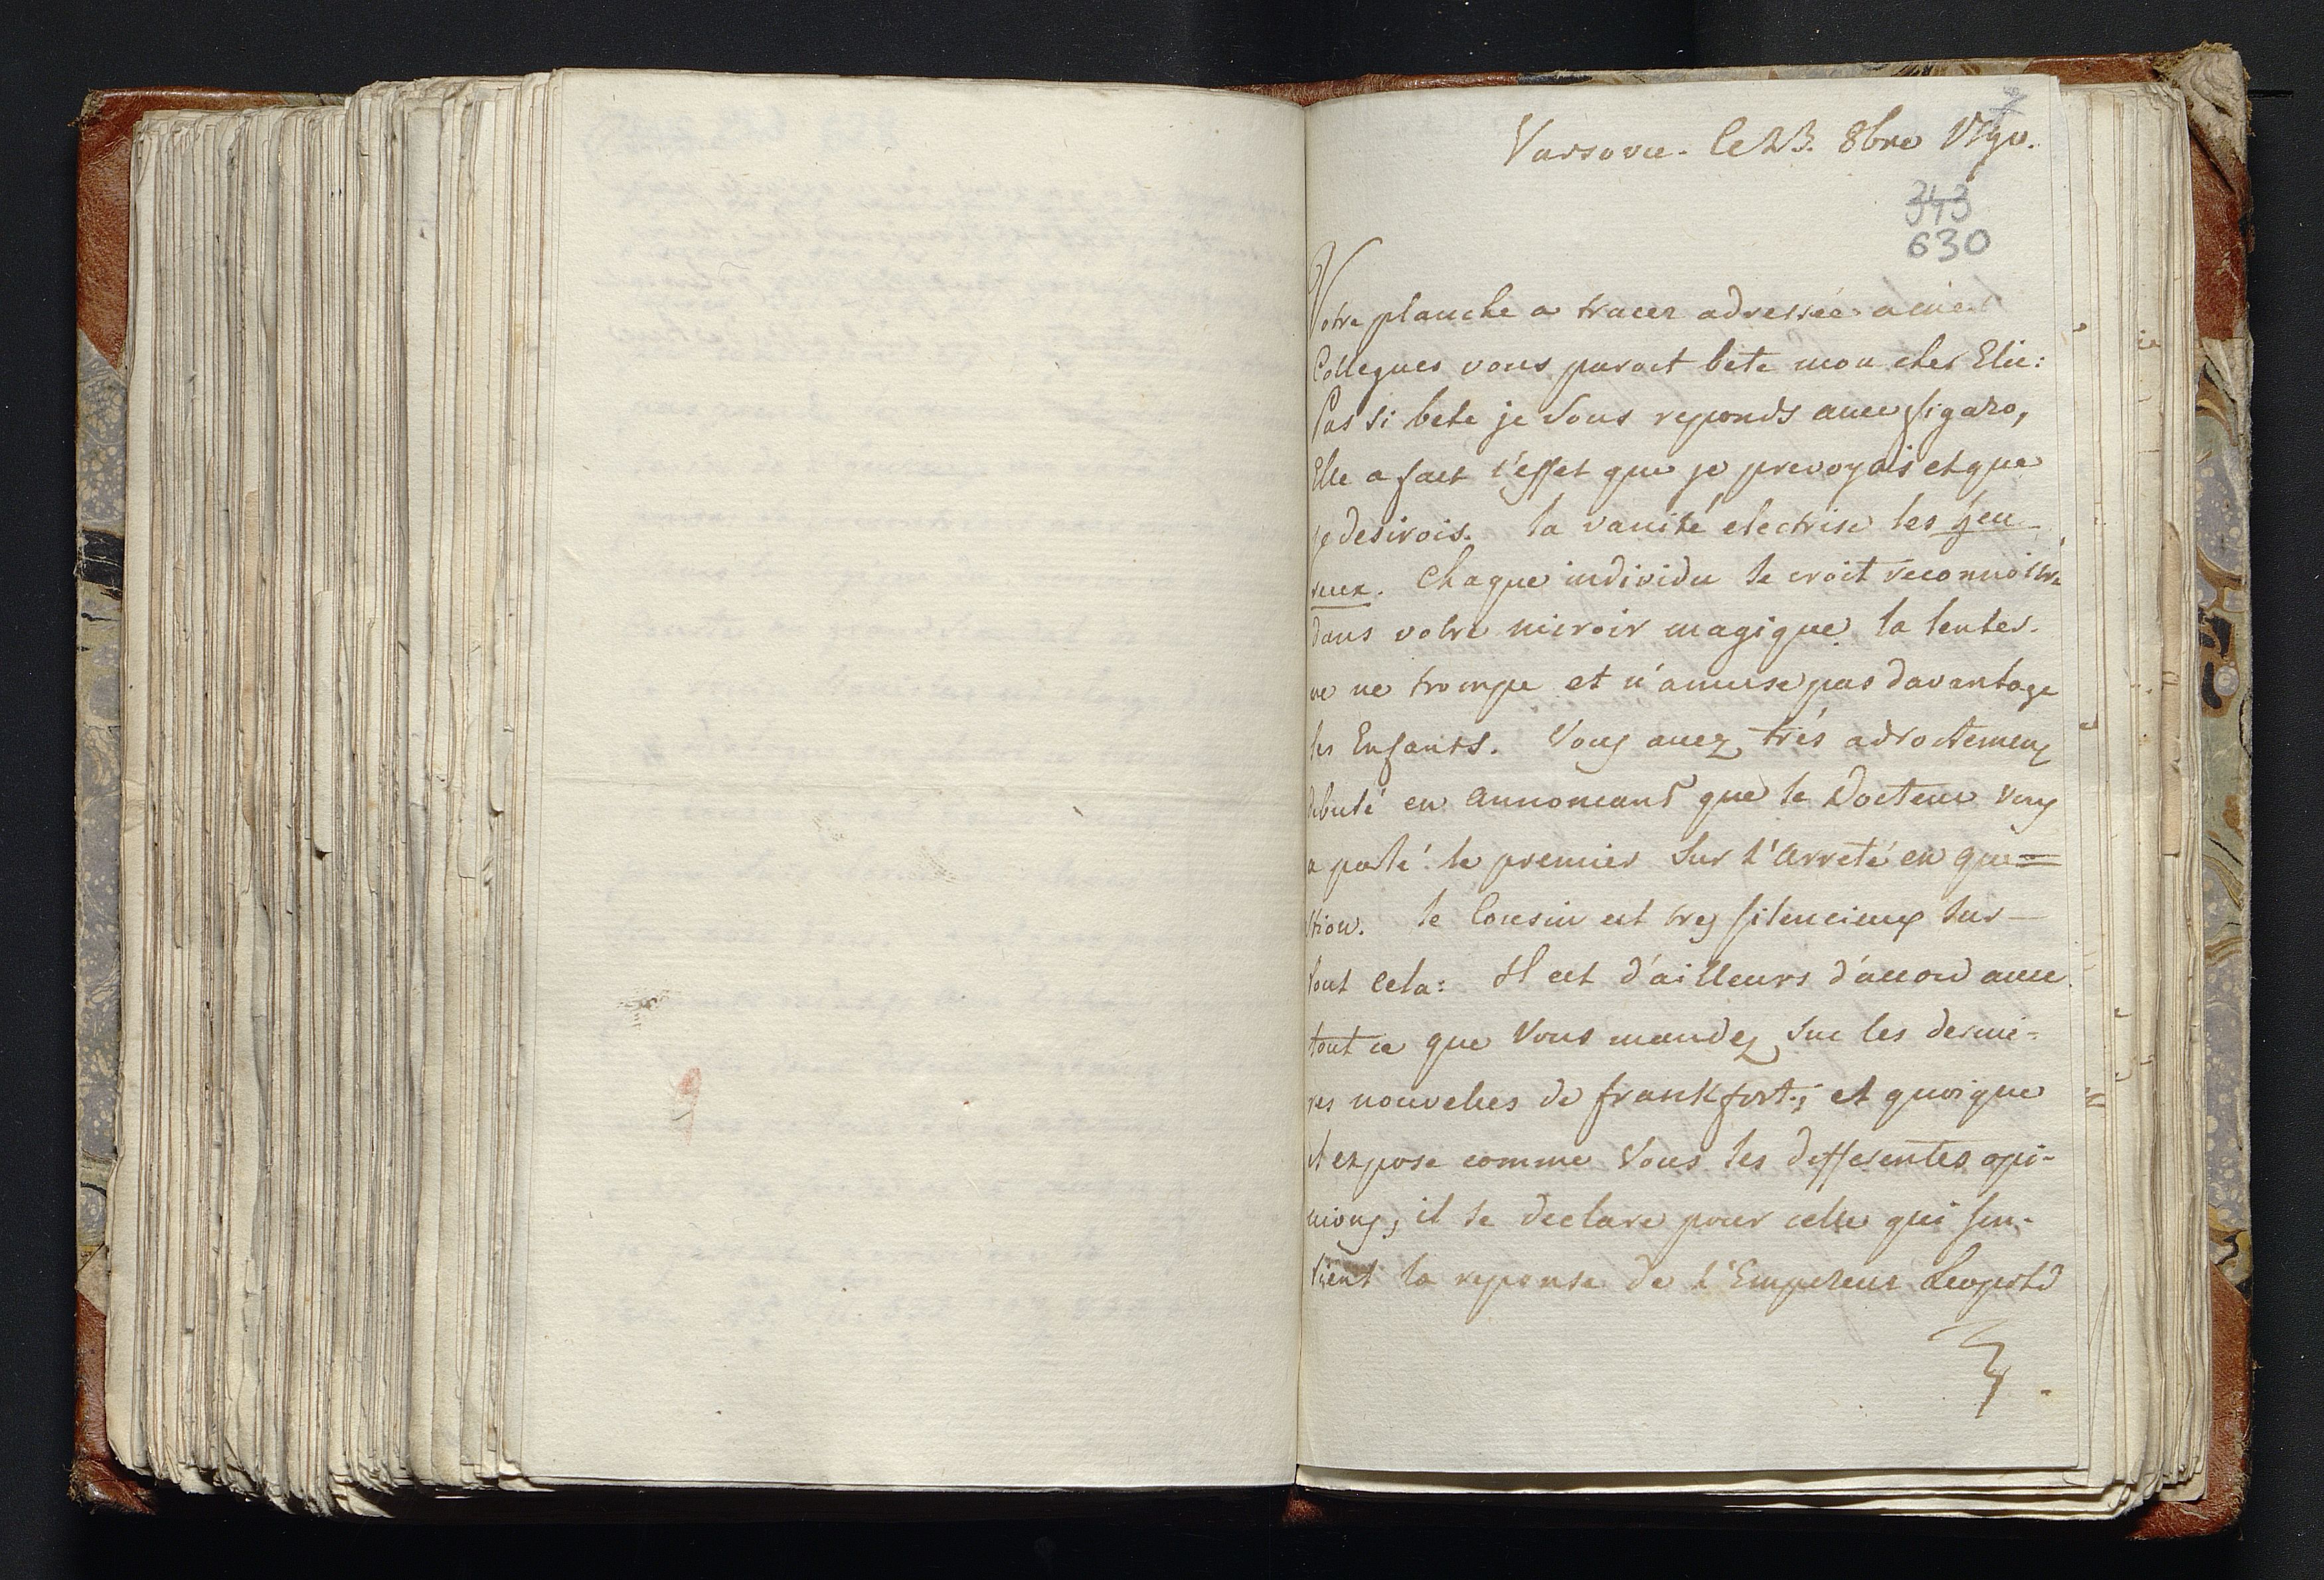 Varsovie. le 23. 8bre 1790.
7
343
630
Votre planche a tracer adressée a mes
Collegues vous paroit bete mon cher Elie:
Pas si bete je Vous reponds avec figaro,
Elle a fait l'effet que je prevoyois et que
je desirois. la vanité electrise les heu-
reux. Chaque individu se croit reconnoitre
dans votre miroir magique. la lenter-
ne ne trompe et n'amuse pas davantage
les Enfants. Vous avez très adroitement
debuté en annoncant que le Docteur vous
a parlé le premier sur l'Arreté en que=
stion. le Cousin est tres silencieux sur
tout cela: Il est d'ailleurs d'accord avec
tout ce que Vous mandez sur les dernie=
res nouvelles de frankfort; et quoique
il expose comme Vous les differentes opi-
nions, il se declare pour celle qui sou-
tient la reponse de l'Empereur Leopold